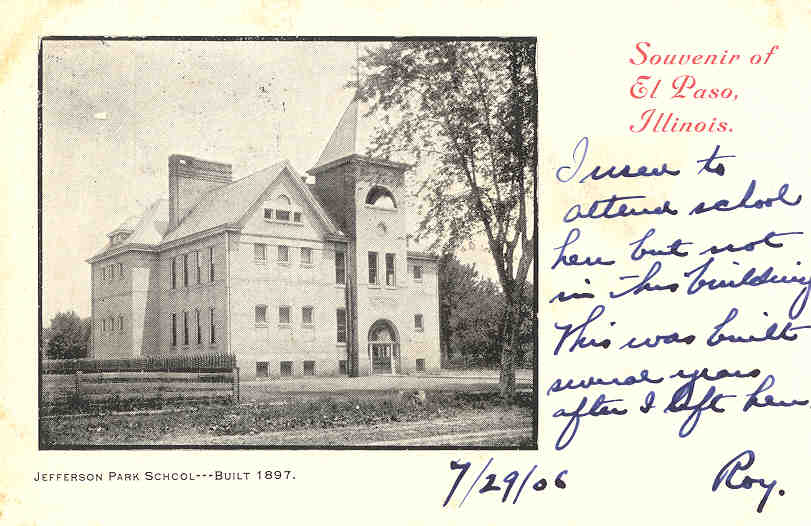 Souvenir of
El Paso,
Illinois.
I used to
attend school
here but not
in this building
This was built
several years
after I left here
Roy.
7/29/06
JEFFERSON PARK SCHOOL---BUILT 1897.